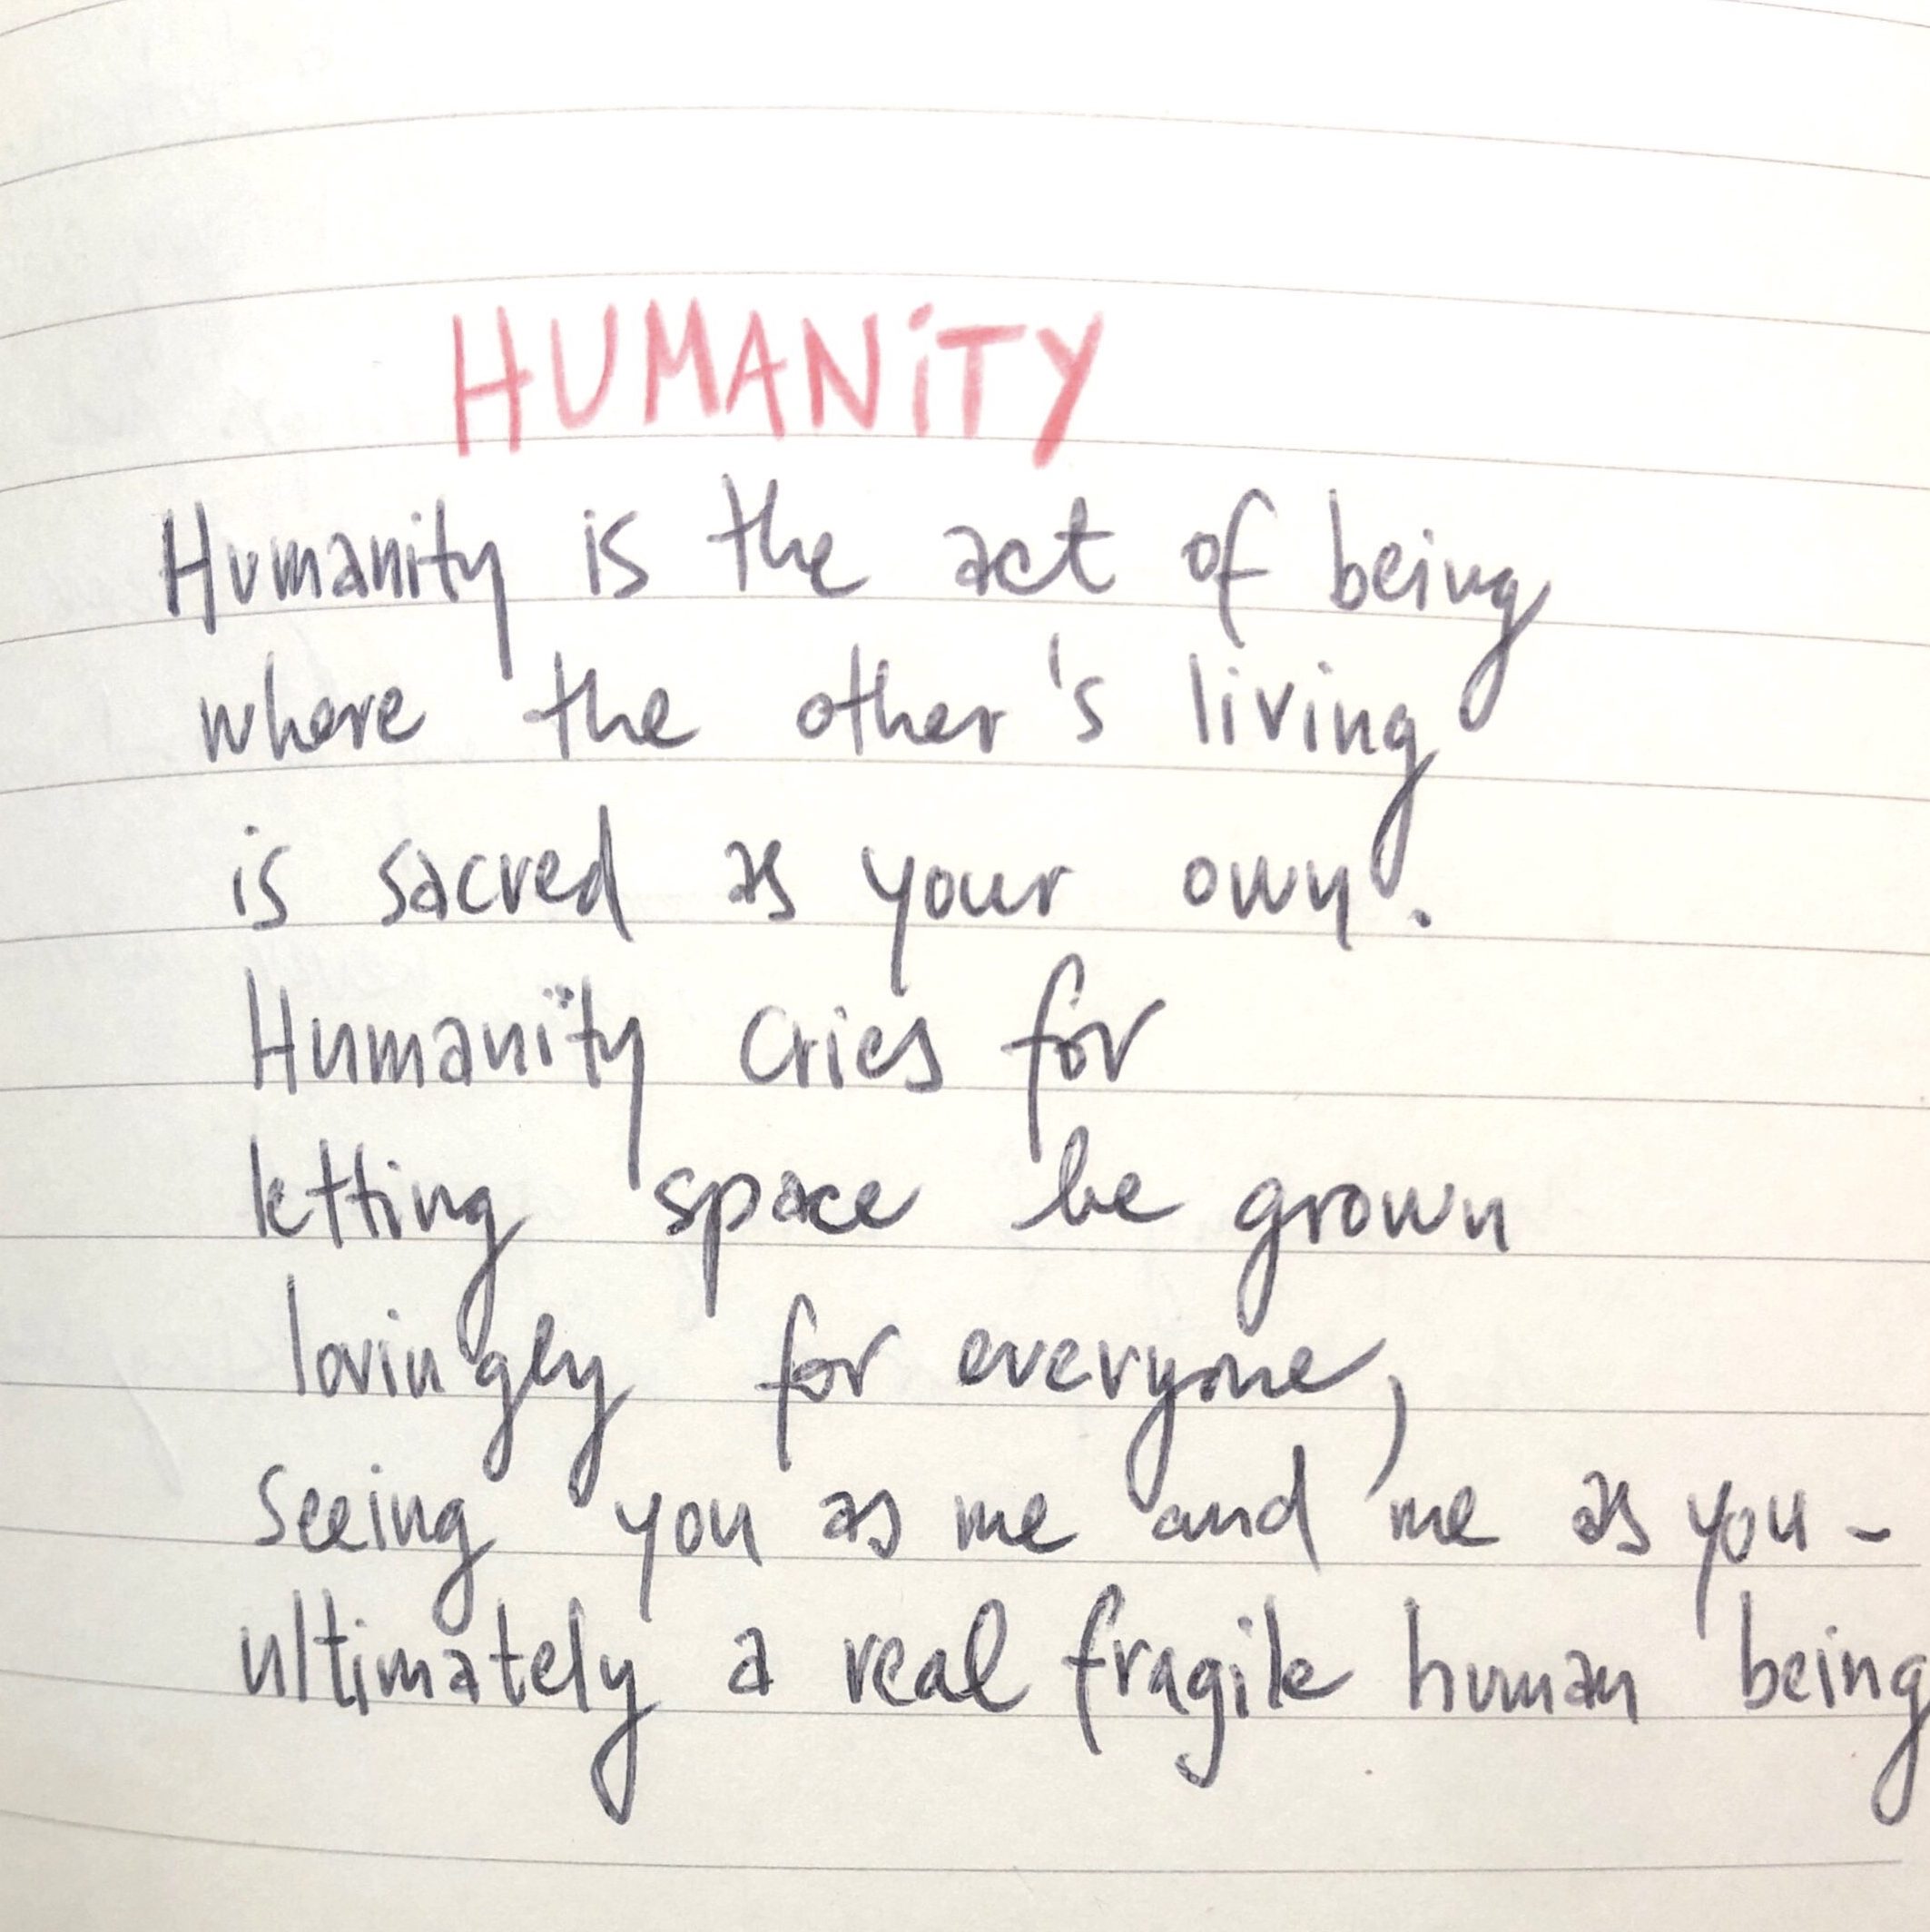 HUMANiTY
Humanity is the act of being
where the other's living
is sacred as your own.
Humanity cries for
letting space be grown
lovingly for everyone,
seeing you as me and me as you -
ultimately a real fragile human being